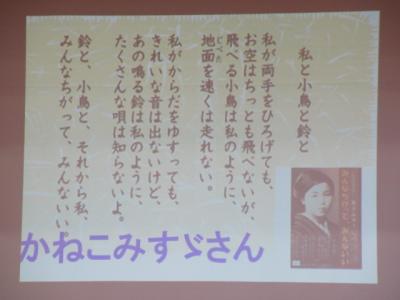 私と小鳥と鈴と
私が両手をひろげても、
お空はちっとも飛べないが、
飛べる小鳥は私のように、
地面を速くは走れない。
じべた
私がからだをゆすっても、
きれいな音は出ないけど、
あの鳴る鈴は私のように、
たくさんな唄は知らないよ。
鈴と、小鳥と、それから私、
みんなちがって、みんないい。
かねこみすゞさん
みんなちがって、みんないい